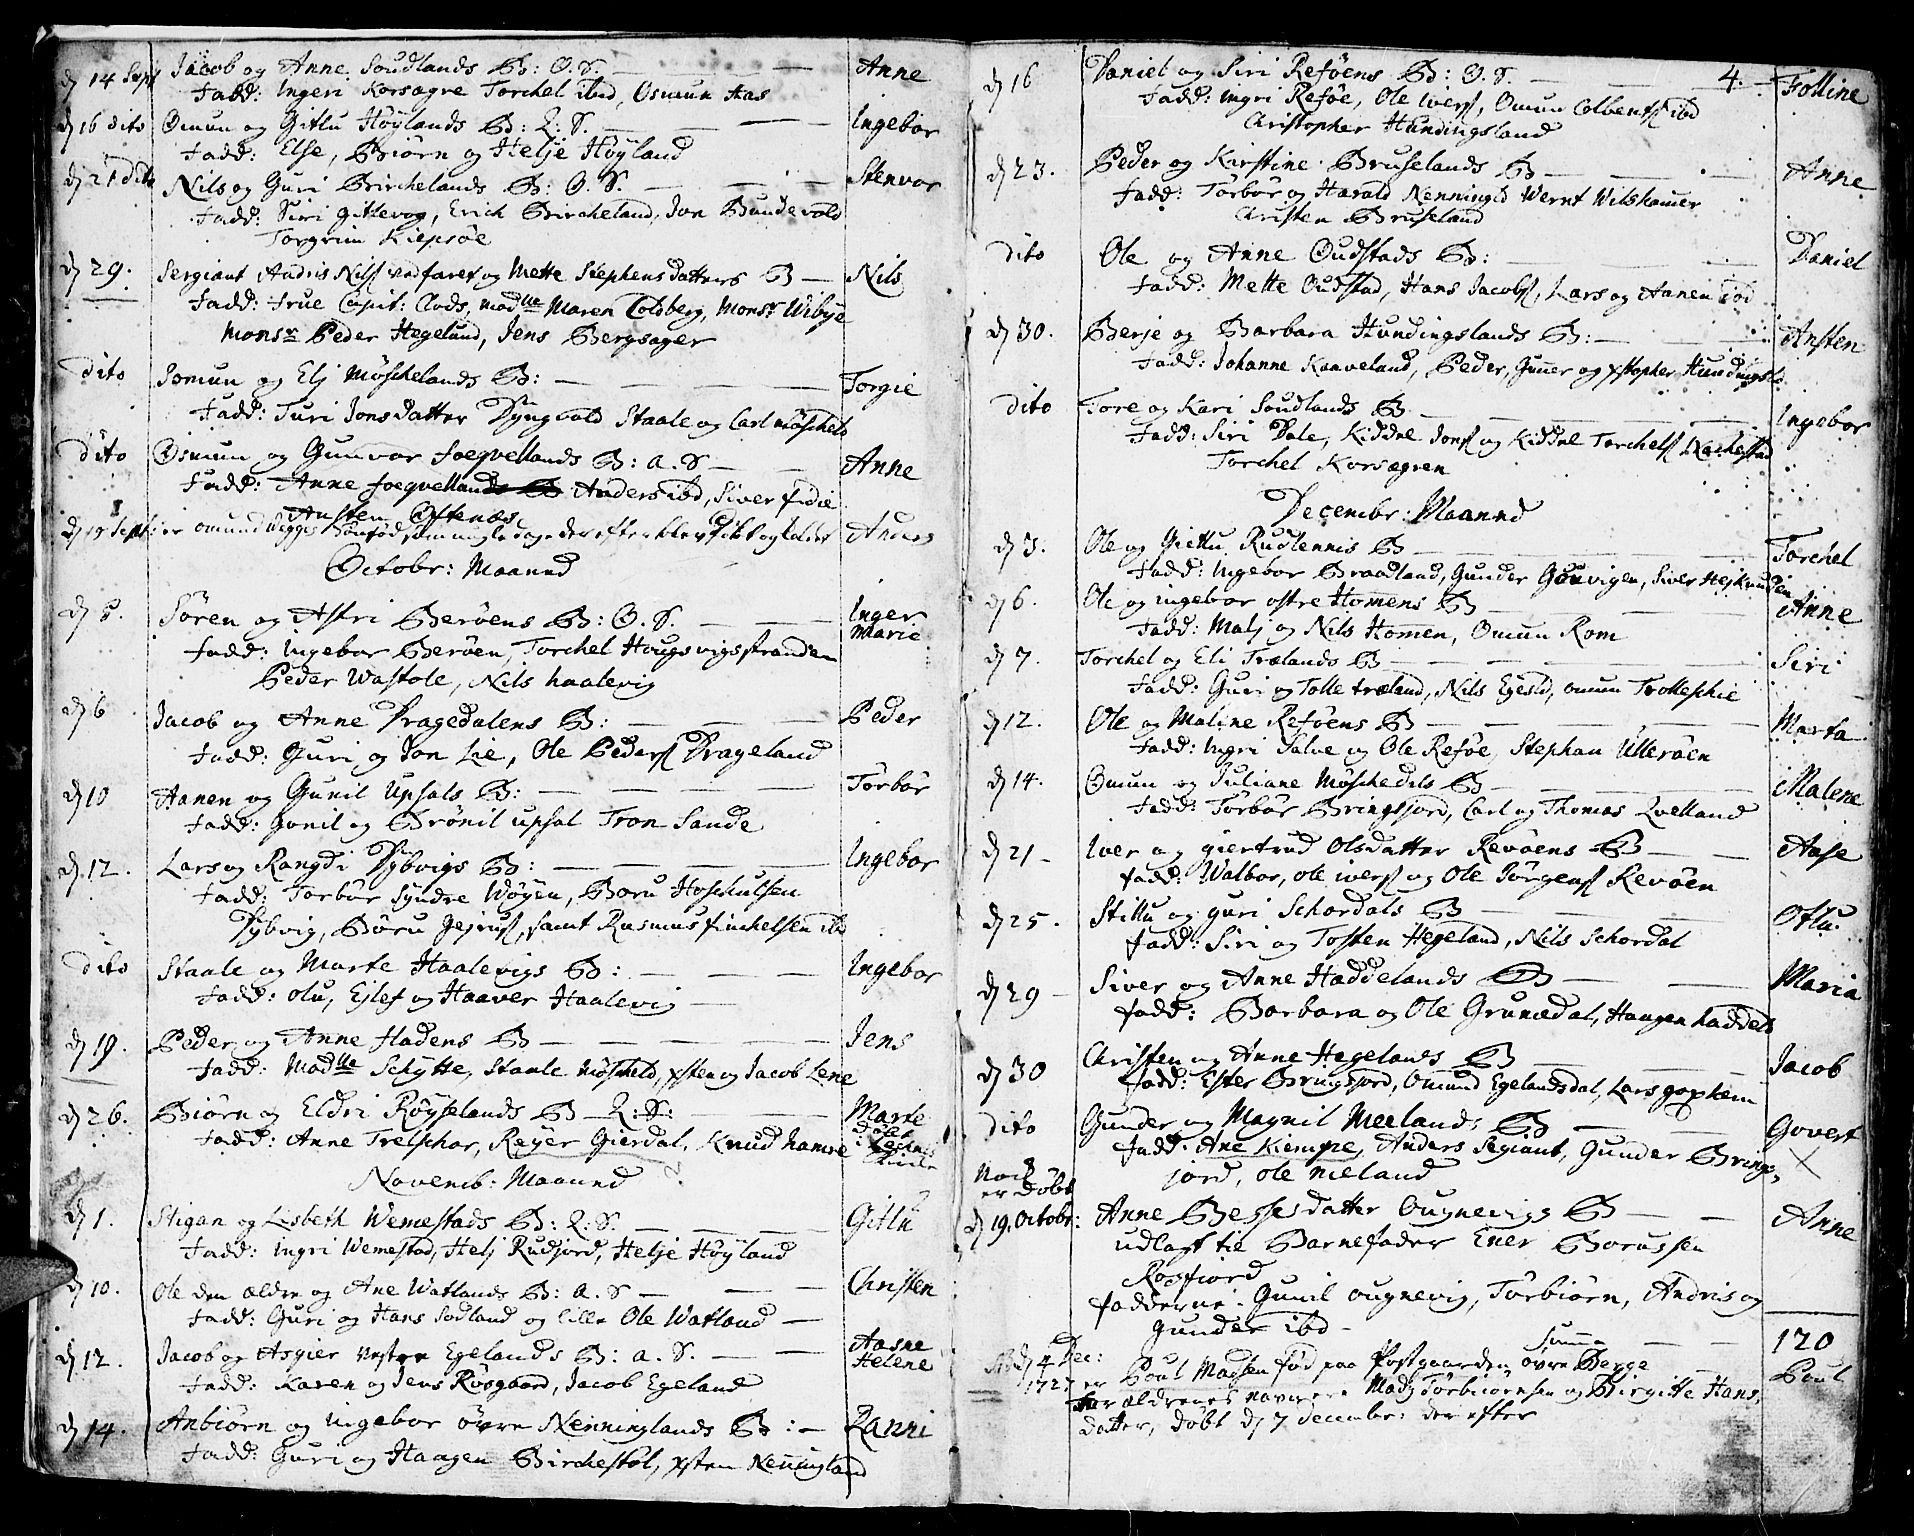 d 14 Sept Jacob og Anne Soudlands B: O. S. — Anne
Fadd: Ingeri Korsægre Torchel ibid, Osmun Has
d 16 dito Omun og Gitlu Höylands B: Q: S. — Ingebor
Fadd: Else, Biörn og Helje Höyland
d 21 dito Nils og Guri Birchelands B: O. S. — Stenvor
Fadd: Siri Gitlevog, Erich Bircheland, Jon Bundevold
Torgrim Kiepsöe
d 29. Sergiant Andris Nilss. Vadfaret og Mette Stephens datters B — Nils
Fadd: Frue Capit: Clods, madlle Maren Coldberg, Monsr Wibye
Monsr Peder Hegelund, Jens Bergsager
dito Somun og Elj Möschelands B: — Torgie
Fadd: Turi Jonsdatter Dyngvold Staale og Carl möscheld
dito Osmun og Gunvor foeqvellands B: a. S — Anne
Fadd: Anne foeqvellands B Anders ibd, Siver fidie
Ansten Oftenæs
d 19 Sept: er omund dögges sön föd, som nogle dage der efter blev döbt og kaldet Anders
Octobr: Maanned
d 5. Sören og Astri Beröens B: O. S. — Inger
Marie
Fadd: Ingebor Beröen, Torchel Hougsvigstranden
Peder Wastole, Nils haalevig
d 6 Jacob og Anne Dragedalens B: — Peder
Fadd: Guri og Jon Lie, Ole Peders Drageland
d 10 Aanen og Gunil Upsals B: — Törbör
Fadd: Gonil og Brönil upsal Tron Sande
d. 12. Lars og Rangdi Dybvigs B: — Ingebor
Fadd: Torbör Syndre Wöyen, Boru Hoschulsen
Dybvig, Böru Gejruss, samt Rasmus finchelsen ibd
dito Staale og Marte Haalevigs B: — Ingebor
Fadd: olu, Ejlef og Haaver Haalevig
d 19. Peder og Anne Hadens B — Jens
Fadd: Madlle Schytte, Staale Möscheld, xsten og Jacob Lene
d 26. Biörn og Eldri Röyselands B — Q: S: — Marte
döbt
i Lechnes
Kirke
Fadd: Anne Trelphar, Reyer Gierdal, Knud hamre
Novemb: Maaned
d 1. Stigan og Lisbeth Wemestads B: Q: S. — Gitlu
Fadd: ingri Wemestad, Helj Rudjord, Helje Höyland
d 10. Ole den ældre og Ane Watlands B: a. S — Christen
Fadd: Guri og Hans Sodland og lille Ole Watland —
d 12. Jacob og Asgier Vestre Egelands B: a. S. — Aasne
Helene
Fadd: Karen og Jens Rösgaard, Jacob Egeland
d 14. Anbiörn og Ingebor övre Nenninglands B: — Ranni
Fadd: Guri og Haagen Birchestöl, xsten Nenningland
4.
d 16 Daniel og Siri Reföens B: O. S. — Folline
Fadd: Ingri Reföe, Ole Ivers, Omun Colbens ibd
Christopher Hundingsland
d 23. Peder og Kirstine Bruselands B — Anne
Fadd: Törbör og Harald Nenningld Wernt Wilshamer
Christen Bruseland
dito Ole og Anne Oudstads B: — Daniel
Fadd: Mette Oudstad, Hans Jacobs, Lars og Aanen ibd
d 30. Berje og Barbara Hundingslands B: — Ansten
Fadd: Johanne Kaaveland, Peder, Guner og xstopher Hundingsld
dito Tore og Kari Soudlands B — Ingebor
Fadd: Siri Dale, Kiddel Jons og Kiddel Torchels
Torchel Korsægren
Decembr: Maaned
d 3. Ole og Giettu Rudlennis B — Torchel
Fadd: Ingebor Braadland, Gunder Gouvigen, Siver Hejknuden
d 6. Ole og ingebor ostre Homens B — Anne
Fadd: Malj og Nils Homen, Omun Rom
d 7. Torchel og Eli Trælands B — Siri
Fadd: Guri og Tolle træland, Nils Egesld, omun Trollephie
d 12. Ole og Maline Reföens B — Marta
Fadd: Ingri Salve og Ole Reföe, Stephan Ulleröen
d 14. Omun og Juliane Möschedils B — Malene
Fadd: Törbör Bringsjord, Carl og Thomas Qvelland
d 21 — Iver og giertrud Olsdatter Revöens B — Aase
fadd: Walbor, ole ivers og Ole Törgens Revöen
d 25. Stillu og guri Schordals B — Otlu
fadd: Siri og Tosten Hegeland, Nils Schordal
d 29 — Siver og Anne Haddelands B — Maria
fadd: Barbara og Ole Grunædal, Haagen haddels
d 30 Christen og Anne Hegelands B — Jacob
fadd: Ester Bringsjord, Omund Egelandsdal, Lars gopkem
dito Gunder og Magnil Meelands B — Govert
fadd: Ane Kiempe, Anders Segiant, Gunder Brings
jord, ole nieland
Noch
er döbt
d 19. Octobr: Anne Bessesdatter Ougnevigs B — Anne
udlagt til Barnefader Ener Borussen
Rosfiord
fadderne: Gunil ougnevig, Törbiörn, Andris og
Gunder ibd —
Suma — 120
d 4 Dec:
1727 er Poul Madsen föd paa Postgaarden övre Berge Poul
forældrenes navne ere Mads Törbiörnsen og Birgitte Hans
datter, döbt d 7 decembr: der efter